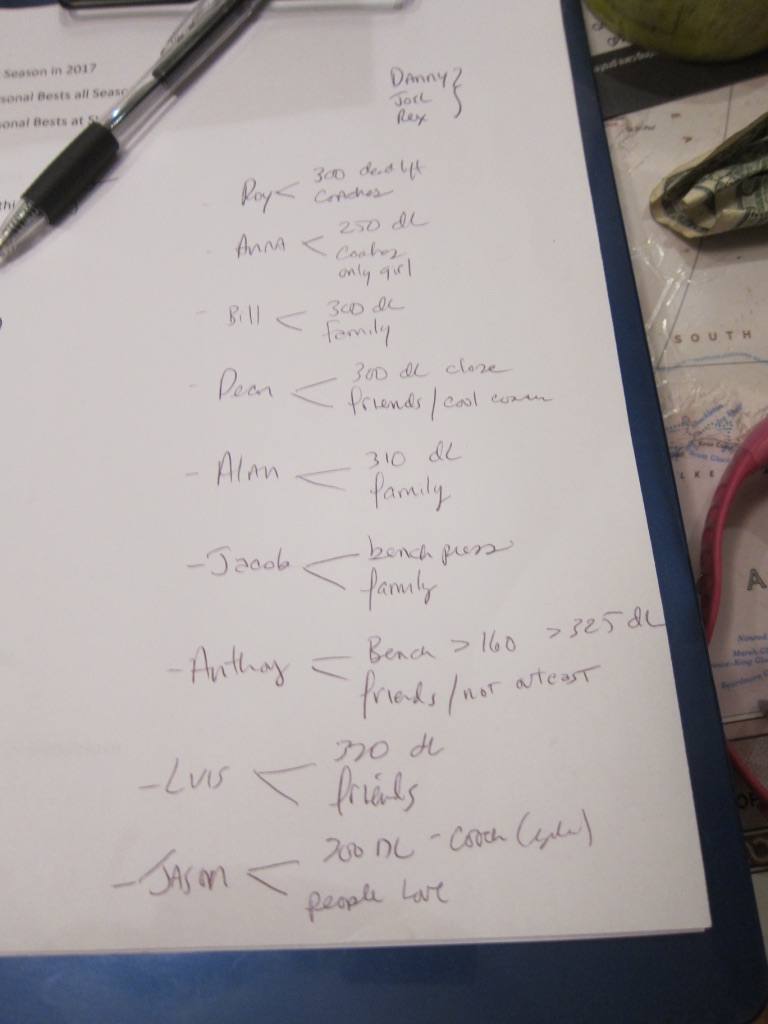 Season in 2017
sonal Bests all Seaso
onal Bests at S
thi
Danny
Joel
Rex
Roy < 300 deadlift
coaches
Anna < 250 dL
coaches
only girl
- Bill < 300 dL
family
- Dean < 300 dL close
friends / cool
- Alan < 310 dL
family
- Jacob < bench press
family
- Anthony < Bench > 160 > 325 dL
friends / not outcast
- Luis < 320 dL
friends
- Jason < 200 DL - coach
people love
SOUTH
LKE
A